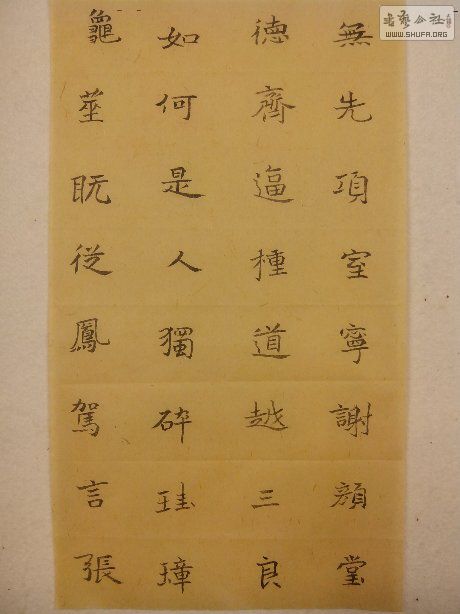 無先項室寧謝顔堂
德齊逼種道越三良
如何是人獨碎珪璋
龜莖既從鳳駕言張
书艺公社
WWW.SHUFA.ORG